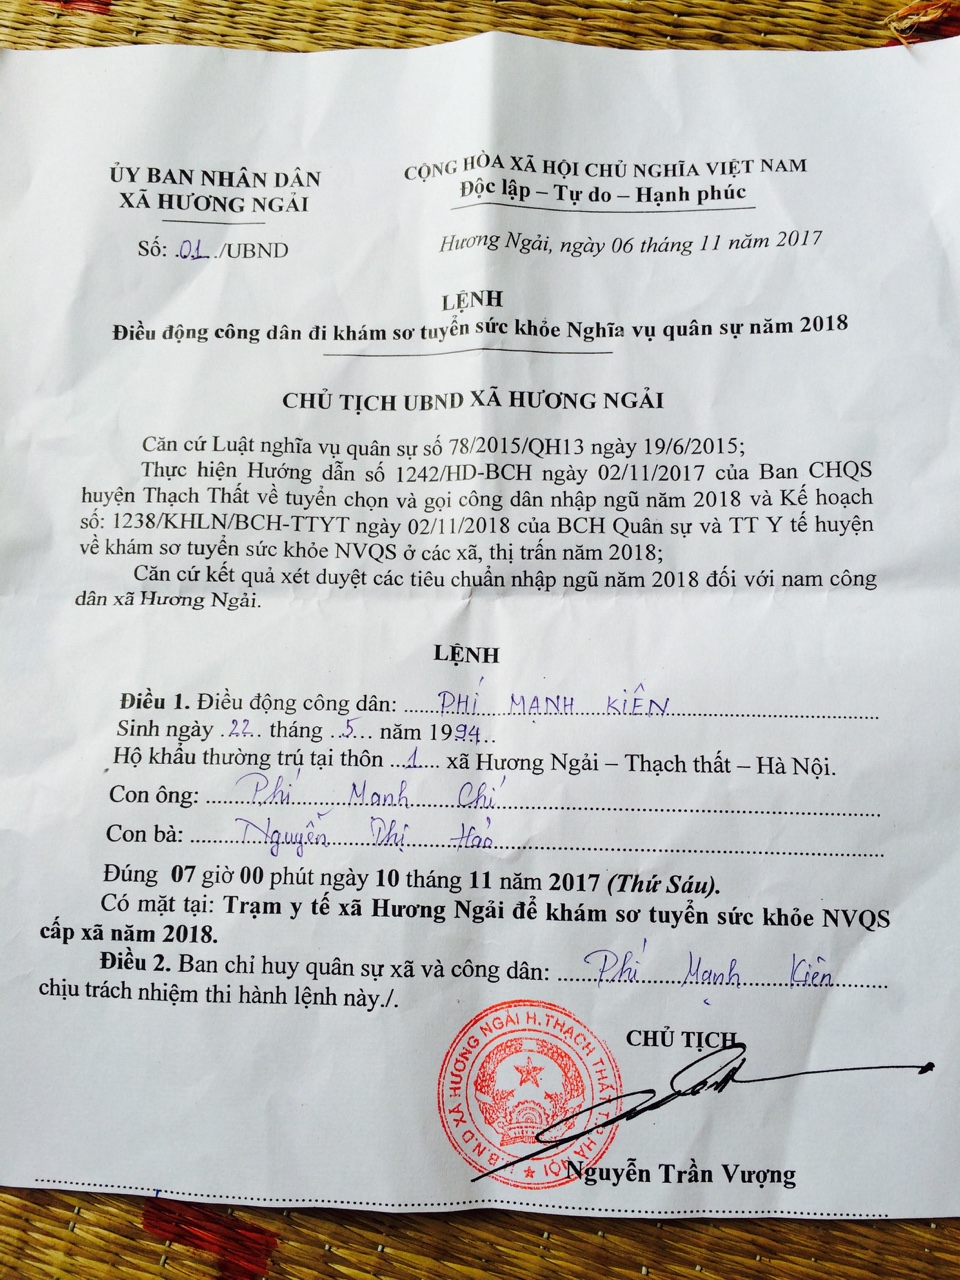 ỦY BAN NHÂN DÂN
XÃ HƯƠNG NGẢI
Số: 01/UBND
CỘNG HÒA XÃ HỘI CHỦ NGHĨA VIỆT NAM
Độc lập – Tự do – Hạnh phúc
Hương Ngải, ngày 06 tháng 11 năm 2017
LỆNH
Điều động công dân đi khám sơ tuyển sức khỏe Nghĩa vụ quân sự năm 2018
CHỦ TỊCH UBND XÃ HƯƠNG NGẢI
Căn cứ Luật nghĩa vụ quân sự số 78/2015/QH13 ngày 19/6/2015;
Thực hiện Hướng dẫn số 1242/HD-BCH ngày 02/11/2017 của Ban CHQS
huyện Thạch Thất về tuyển chọn và gọi công dân nhập ngũ năm 2018 và Kế hoạch
số: 1238/KHLN/BCH-TTYT ngày 02/11/2018 của BCH Quân sự và TT Y tế huyện
về khám sơ tuyển sức khỏe NVQS ở các xã, thị trấn năm 2018;
Căn cứ kết quả xét duyệt các tiêu chuẩn nhập ngũ năm 2018 đối với nam công
dân xã Hương Ngải.
LỆNH
Điều 1. Điều động công dân: PHÍ MẠNH KIÊN
Sinh ngày 22 tháng 5 năm 1994
Hộ khẩu thường trú tại thôn 1 xã Hương Ngải – Thạch thất – Hà Nội.
Con ông: Phí Mạnh Chí
Con bà: Nguyễn Thị Hảo
Đúng 07 giờ 00 phút ngày 10 tháng 11 năm 2017 (Thứ Sáu).
Có mặt tại: Trạm y tế xã Hương Ngải để khám sơ tuyển sức khỏe NVQS
cấp xã năm 2018.
Điều 2. Ban chỉ huy quân sự xã và công dân: Phí Mạnh Kiên
chịu trách nhiệm thi hành lệnh này./.
CHỦ TỊCH
U.B.N.D XÃ HƯƠNG NGẢI H.THẠCH THẤT T.P HÀ NỘI
Nguyễn Trần Vượng